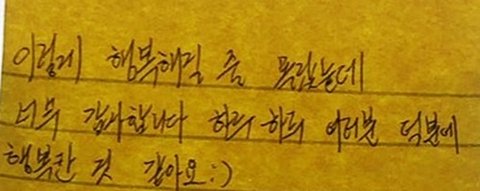 이렇게 행복해질 줄 몰랐는데
너무 감사합니다 하루 하루 여러분 덕분에
행복한 것 같아요:)